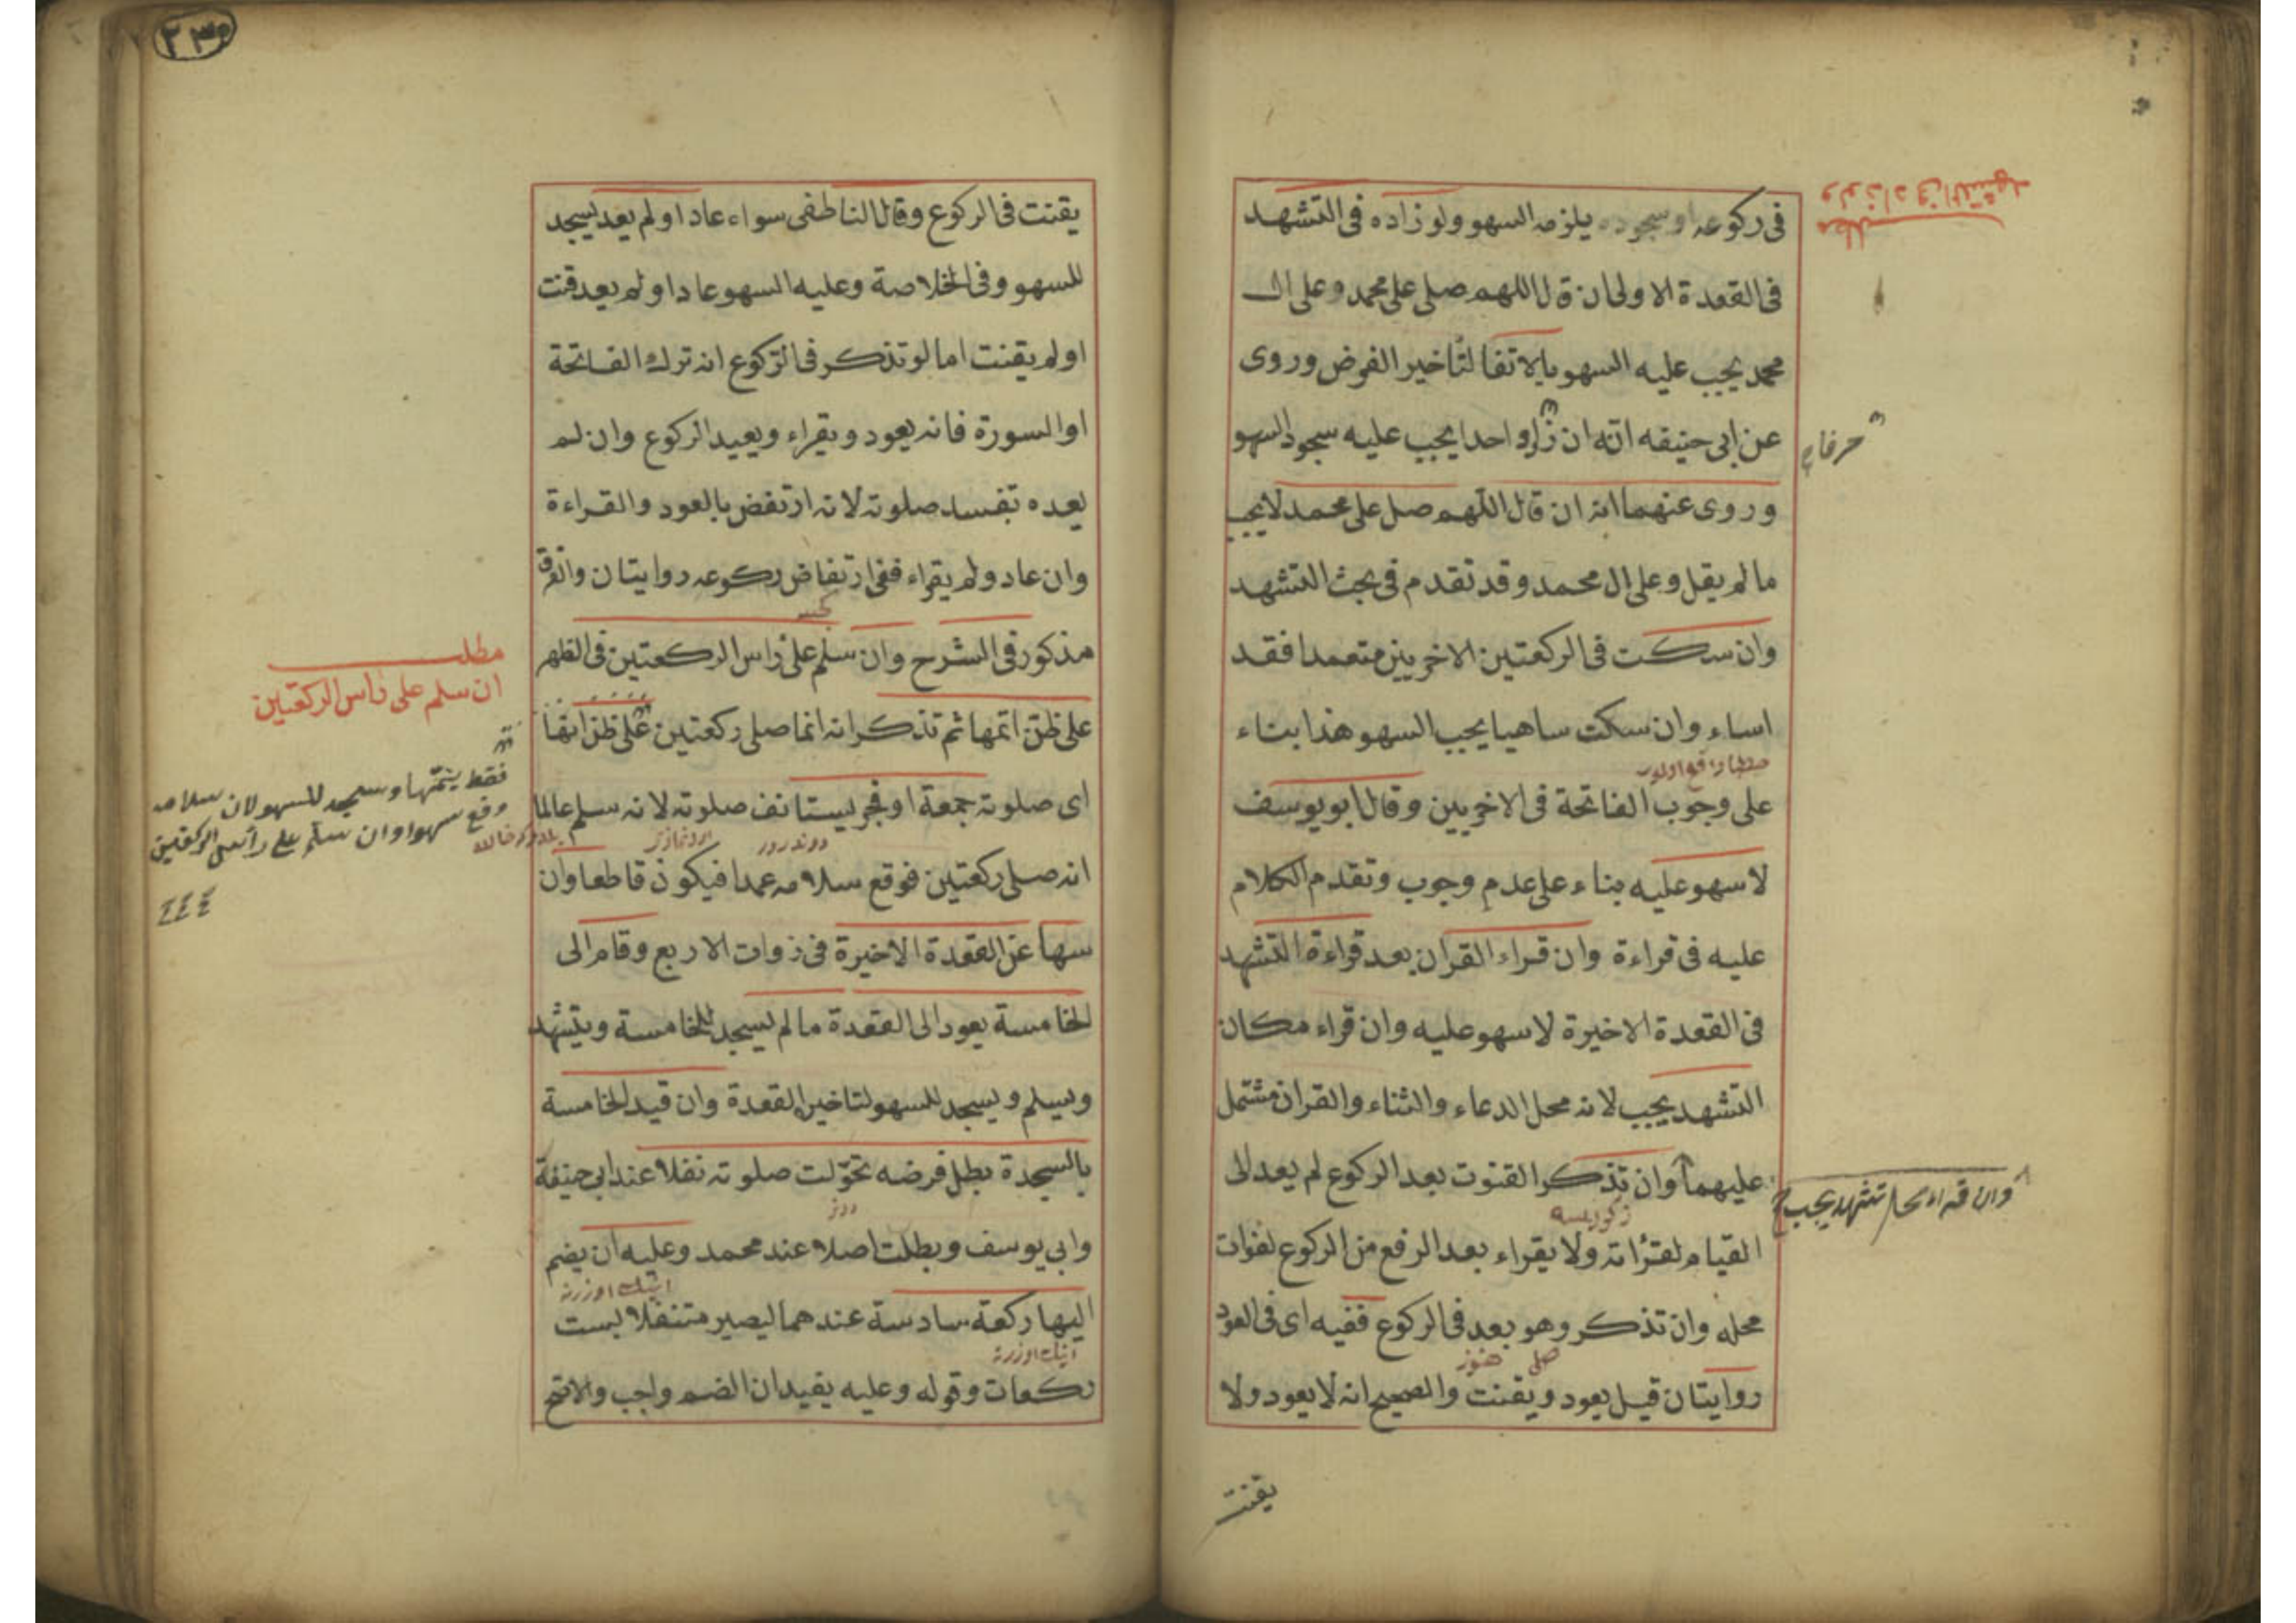 مطلب
ولو زاد فى التشهد
فى ركوعه او سجوده يلزمه السهو ولو زاده فى التشهد
فى القعدة الاولى ان قال اللهم صلى على محمد وعلى ال
محمد يجب عليه السهو بالاتفا لتاخير الفرض وروى
عن ابى حنيفه انه ان زاد واحدا يجب عليه سجود السهو
حرفا
وروى عنهما انه ان قال اللهم صل على محمد لايجب
ما لم يقل وعلى ال محمد وقد تقدم فى بحث التشهد
وان سكت فى الركعتين الاخريين متعمدا فقد
اساء وان سكت ساهيا يجب السهو هذا بناء
على وجوب الفاتحة فى الاخريين وقال ابو يوسف
لا سهو عليه بناء على عدم وجوب وتقدم الكلام
عليه فى قراءة وان قراء القران بعد قراءة التشهد
فى القعدة الاخيرة لا سهو عليه وان قراء مكان
التشهد يجب لانه محل الدعاء والثناء والقران مشتمل
عليهما وان تذكر القنوت بعد الركوع لم يعد الى
القيام لقرأته ولا يقراء بعد الرفع من الركوع لفوات
محله وان تذكر وهو بعد فى الركوع ففيه اى فى العود
هنوز
روايتان قيل يعود ويقنت والصحيح انه لا يعود ولا
يقنت
٢٣٥
يقنت فى الركوع وقال الناطفى سواء عاد او لم يعد يسجد
للسهو وفى الخلاصة وعليه السهو عاد او لم يعد قنت
او لم يقنت اما لو تذكر فى الركوع انه ترك الفاتحة
او السورة فانه يعود ويقراء ويعيد الركوع وان لم
يعده تفسد صلوته لانه ارتفض بالعود والقراءة
وان عاد ولم يقراء ففى ارتفاض ركوعه روايتان والفرق
مذكور فى الشرح وان سلم على راس الركعتين فى الظهر
مطلب
ان سلم على راس الركعتين
على ظن اتمها ثم تذكر انه انما صلى ركعتين على ظن انها
فقط يتمها وسجد للسهو لان سلامه
وقع سهوا وان سلم على رأس الركعتين
اى صلوته جمعة او فجر يستانف صلوته لانه سلم عالما
انه صلى ركعتين فوقع سلامه عمدا فيكون قاطعا وان
سها عن القعدة الاخيرة فى زوات الاربع وقام الى
الخامسة يعود الى القعدة ما لم يسجد للخامسة ويتشهد
ويسلم ويسجد للسهو لتاخير القعدة وان قيد الخامسة
بالسجدة بطل فرضه تحولت صلوته نفلا عند ابى حنيفة
وابى يوسف وبطلت اصلا عند محمد وعليه ان يضم
اليها ركعة سادسة عندهما ليصير متنفلا بست
ركعات وقوله وعليه يفيد ان الضم واجب والاصح